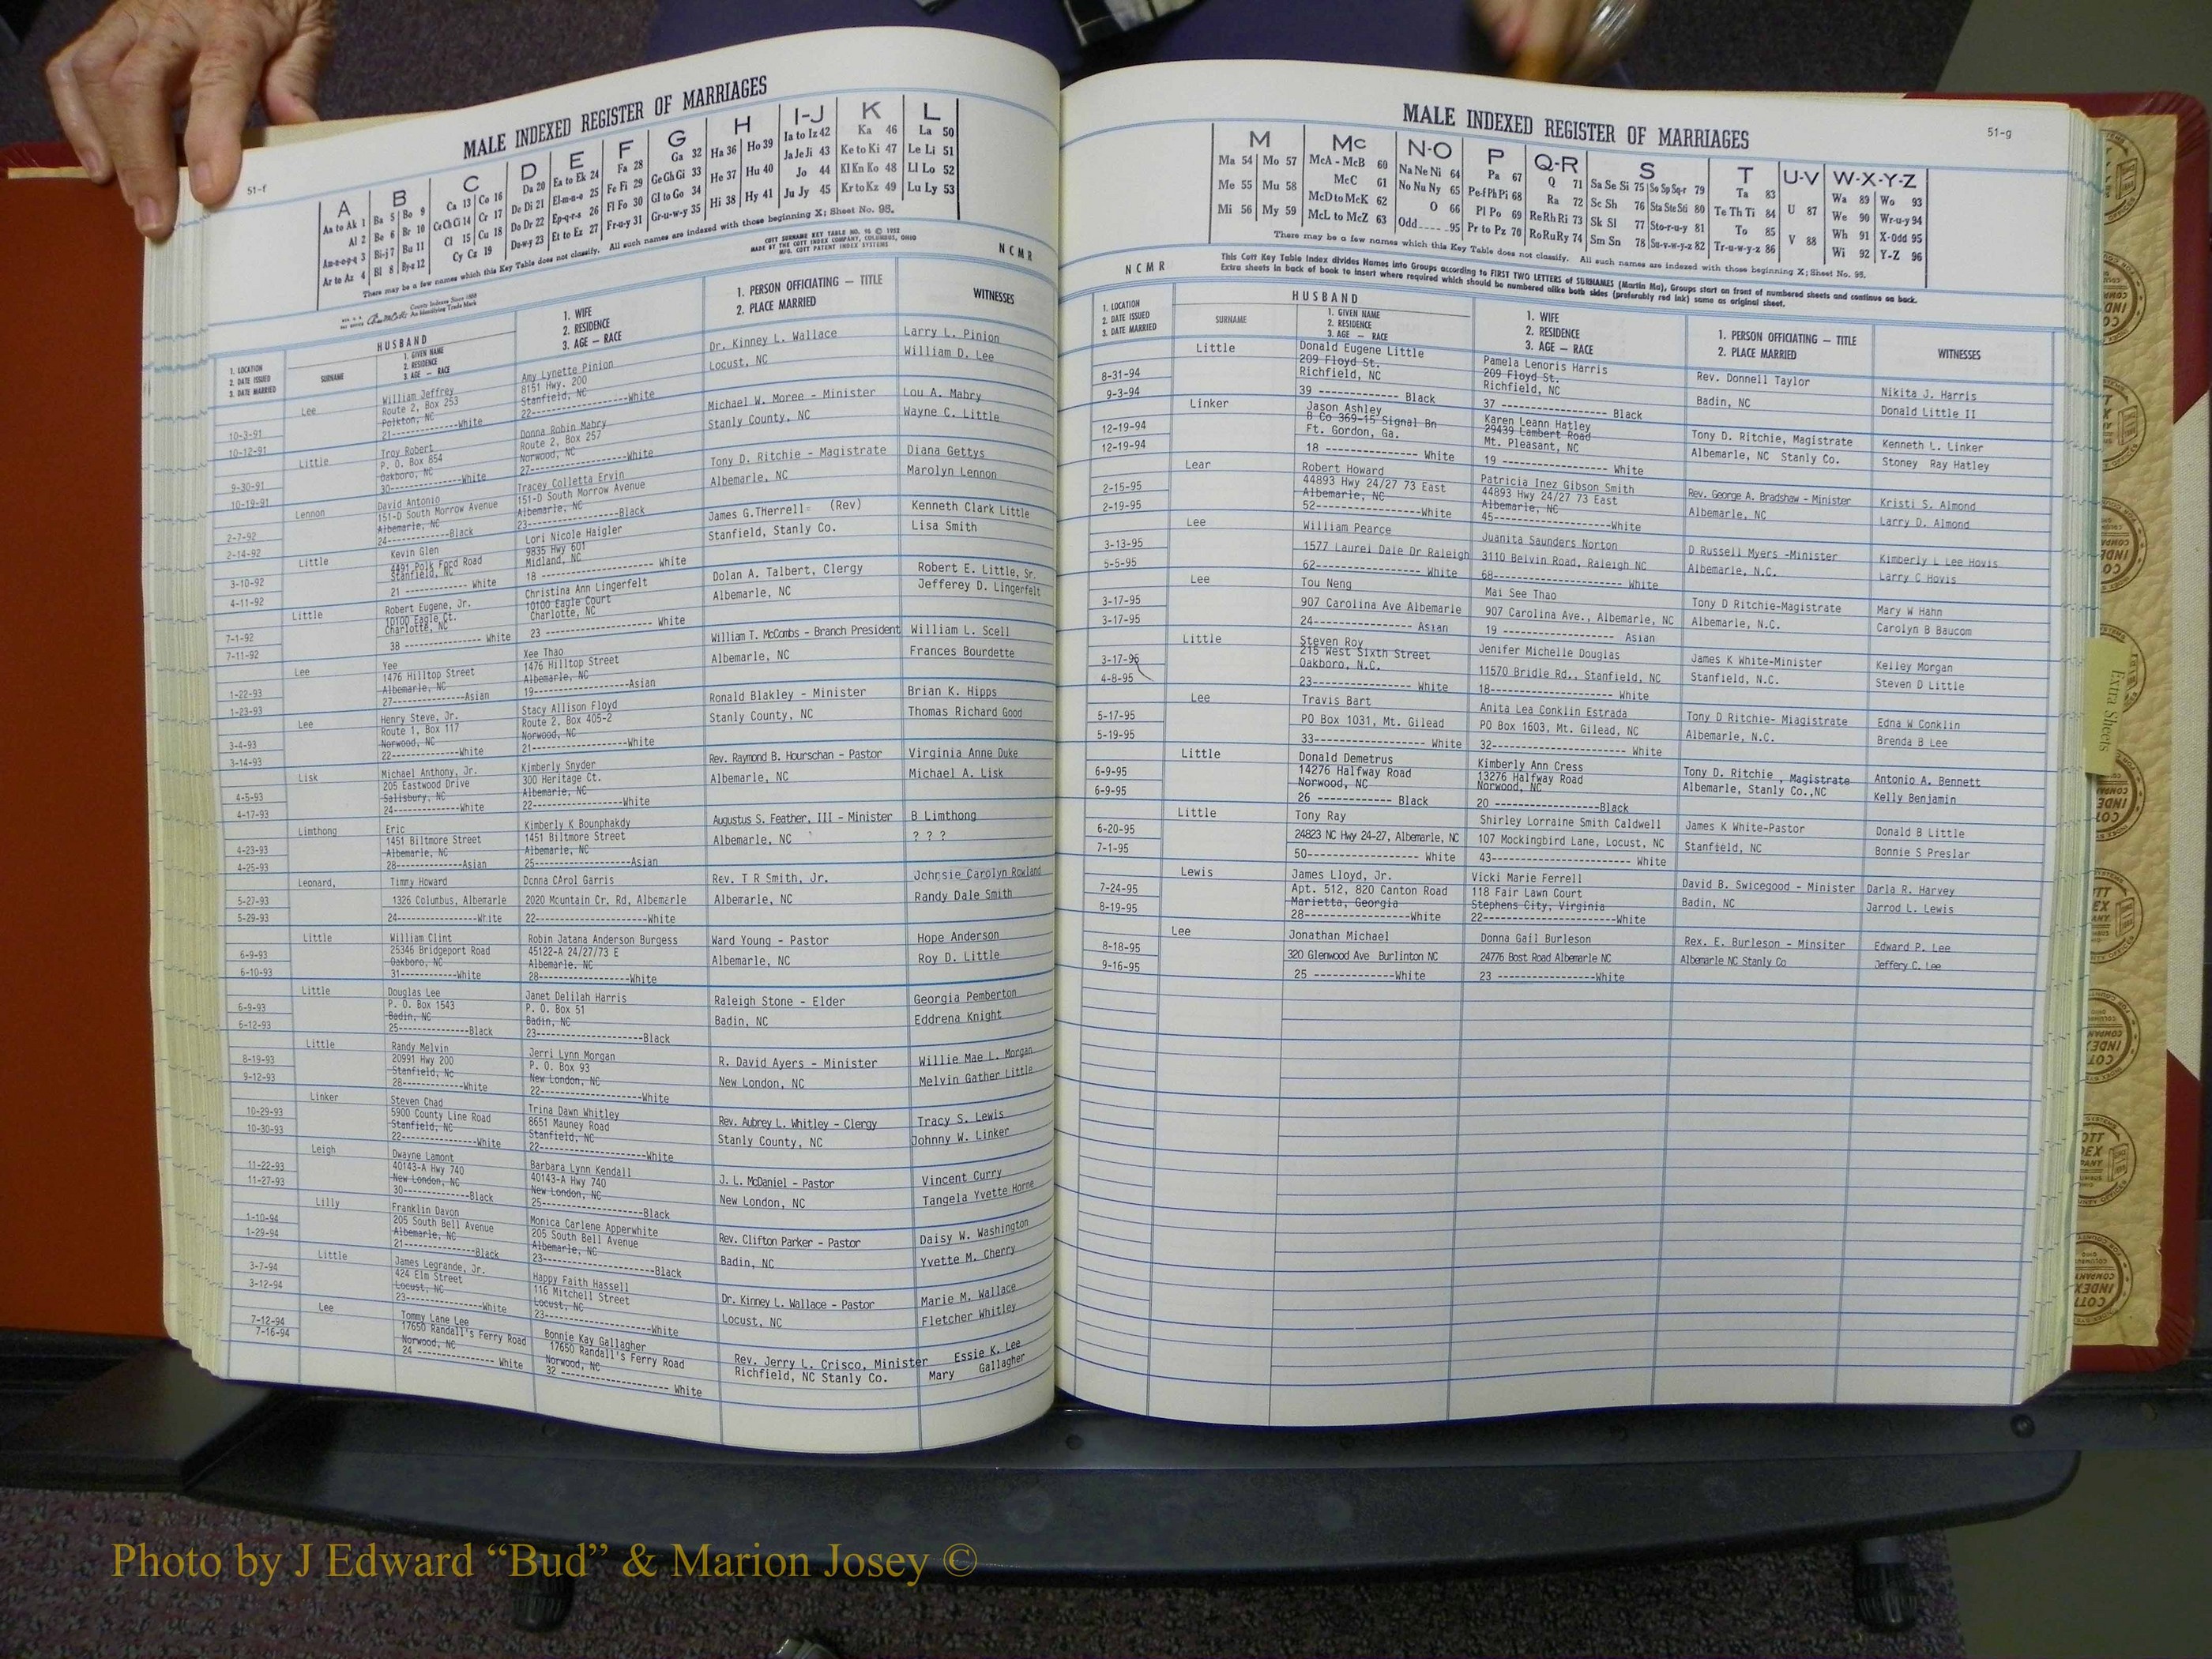 MALE INDEXED REGISTER OF MARRIAGES
51-f
A B C D E F G H I-J K L
Aa to Ak 1 Ba 5 Bo 9 Ca 13 Co 16 Da 20 Ea to Ek 24 Fa 28 Ga 32 Ha 36 Ho 39 Ia to Iz 42 Ka 46 La 50
Al 2 Be 6 Br 10 Ce Ch Ci 14 Cr 17 De Di 21 El-m-n-o 25 Fe Fi 29 Ge Gh Gi 33 He 37 Hu 40 Ja Je Ji 43 Ke to Ki 47 Le Li 51
Am-n-o-p-q 3 Bi-j 7 Bu 11 Cl 15 Cu 18 Do Dr 22 Ep-q-r-s 26 Fl Fo 30 Gl to Go 34 Hi 38 Hy 41 Jo 44 Kl Kn Ko 48 Ll Lo 52
Ar to Az 4 Bl 8 By-z 12 Cy Cz 19 Du-w-y 23 Et to Ez 27 Fr-u-y 31 Gr-u-w-y 35 Ju Jy 45 Kr to Kz 49 Lu Ly 53
There may be a few names which this Key Table does not classify. All such names are indexed with those beginning X; Sheet No. 95.
County Indexes Since 1888
An Identifying Trade Mark
COTT SURNAME KEY TABLE NO. 96 © 1952
MADE BY THE COTT INDEX COMPANY, COLUMBUS, OHIO
MFG. COTT PATENT INDEX SYSTEMS
NCMR
1. LOCATION
2. DATE ISSUED
3. DATE MARRIED
HUSBAND
SURNAME
1. GIVEN NAME
2. RESIDENCE
3. AGE — RACE
1. WIFE
2. RESIDENCE
3. AGE — RACE
1. PERSON OFFICIATING — TITLE
2. PLACE MARRIED
WITNESSES
10-3-91
10-12-91
Lee
William Jeffrey
Route 2, Box 253
Polkton, NC
21-------------White
Amy Lynette Pinion
8151 Hwy. 200
Stanfield, NC
22-------------White
Dr. Kinney L. Wallace
Locust, NC
Larry L. Pinion
William D. Lee
9-30-91
10-19-91
Little
Troy Robert
P. O. Box 854
Oakboro, NC
30-------------White
Donna Robin Mabry
Route 2, Box 257
Norwood, NC
27-------------White
Michael W. Moree - Minister
Stanly County, NC
Lou A. Mabry
Wayne C. Little
2-7-92
2-14-92
Lennon
David Antonio
151-D South Morrow Avenue
Albemarle, NC
24-------------Black
Tracey Colletta Ervin
151-D South Morrow Avenue
Albemarle, NC
23-------------Black
Tony D. Ritchie - Magistrate
Albemarle, NC
Diana Gettys
Marolyn Lennon
3-10-92
4-11-92
Little
Kevin Glen
4491 Polk Ford Road
Stanfield, NC
21 ---------- White
Lori Nicole Haigler
9835 Hwy 601
Midland, NC
18 ---------- White
James G.THerrell (Rev)
Stanfield, Stanly Co.
Kenneth Clark Little
Lisa Smith
7-1-92
7-11-92
Little
Robert Eugene, Jr.
10100 Eagle Ct.
Charlotte, NC
38 ---------- White
Christina Ann Lingerfelt
10100 Eagle Court
Charlotte, NC
23 ---------- White
Dolan A. Talbert, Clergy
Albemarle, NC
Robert E. Little, Sr.
Jefferey D. Lingerfelt
1-22-93
1-23-93
Lee
Yee
1476 Hilltop Street
Albemarle, NC
27-------------Asian
Xee Thao
1476 Hilltop Street
Albemarle, NC
19-------------Asian
William T. McCombs - Branch President
Albemarle, NC
William L. Scell
Frances Bourdette
3-4-93
3-14-93
Lee
Henry Steve, Jr.
Route 1, Box 117
Norwood, NC
22-------------White
Stacy Allison Floyd
Route 2, Box 405-2
Norwood, NC
21-------------White
Ronald Blakley - Minister
Stanly County, NC
Brian K. Hipps
Thomas Richard Good
4-5-93
4-17-93
Lisk
Michael Anthony, Jr.
205 Eastwood Drive
Salisbury, NC
24-------------White
Kimberly Snyder
300 Heritage Ct.
Albemarle, NC
22-------------White
Rev. Raymond B. Hourschan - Pastor
Albemarle, NC
Virginia Anne Duke
Michael A. Lisk
4-23-93
4-25-93
Limthong
Eric
1451 Biltmore Street
Albemarle, NC
28-------------Asian
Kimberly K Bounphakdy
1451 Biltmore Street
Albemarle, NC
25-------------Asian
Augustus S. Feather, III - Minister
Albemarle, NC
B Limthong
? ? ?
5-27-93
5-29-93
Leonard,
Timmy Howard
1326 Columbus, Albemarle
24-------------White
Donna CArol Garris
2020 Mountain Cr. Rd, Albemarle
22-------------White
Rev. T R Smith, Jr.
Albemarle, NC
Johnsie Carolyn Rowland
Randy Dale Smith
6-9-93
6-10-93
Little
William Clint
25346 Bridgeport Road
Oakboro, NC
31-------------White
Robin Jatana Anderson Burgess
45122-A 24/27/73 E
Albemarle. NC
28-------------White
Ward Young - Pastor
Albemarle, NC
Hope Anderson
Roy D. Little
6-9-93
6-12-93
Little
Douglas Lee
P. O. Box 1543
Badin, NC
25-------------Black
Janet Delilah Harris
P. O. Box 51
Badin, NC
23-------------Black
Raleigh Stone - Elder
Badin, NC
Georgia Pemberton
Eddrena Knight
8-19-93
9-12-93
Little
Randy Melvin
20991 Hwy 200
Stanfield, NC
28-------------White
Jerri Lynn Morgan
P. O. Box 93
New London, NC
22-------------White
R. David Ayers - Minister
New London, NC
Willie Mae L. Morgan
Melvin Gather Little
10-29-93
10-30-93
Linker
Steven Chad
5900 County Line Road
Stanfield, NC
22-------------White
Trina Dawn Whitley
8651 Mauney Road
Stanfield, NC
22-------------White
Rev. Aubrey L. Whitley - Clergy
Stanly County, NC
Tracy S. Lewis
Johnny W. Linker
11-22-93
11-27-93
Leigh
Dwayne Lamont
40143-A Hwy 740
New London, NC
30-------------Black
Barbara Lynn Kendall
40143-A Hwy 740
New London, NC
25-------------Black
J. L. McDaniel - Pastor
New London, NC
Vincent Curry
Tangela Yvette Horne
1-10-94
1-29-94
Lilly
Franklin Davon
205 South Bell Avenue
Albemarle, NC
21-------------Black
Monica Carlene Apperwhite
205 South Bell Avenue
Albemarle, NC
23-------------Black
Rev. Clifton Parker - Pastor
Badin, NC
Daisy W. Washington
Yvette M. Cherry
3-7-94
3-12-94
Little
James Legrande, Jr.
424 Elm Street
Locust, NC
23-------------White
Happy Faith Hassell
116 Mitchell Street
Locust, NC
23-------------White
Dr. Kinney L. Wallace - Pastor
Locust, NC
Marie M. Wallace
Fletcher Whitley
7-12-94
7-16-94
Lee
Tommy Lane Lee
17650 Randall's Ferry Road
Norwood, NC
24 ------------- White
Bonnie Kay Gallagher
17650 Randall's Ferry Road
Norwood, NC
32 ------------- White
Rev. Jerry L. Crisco, Minister
Richfield, NC Stanly Co.
Essie K. Lee
Mary Gallagher
MALE INDEXED REGISTER OF MARRIAGES
51-g
M Mc N-O P Q-R S T U-V W-X-Y-Z
Ma 54 Mo 57 McA - McB 60 Na Ne Ni 64 Pa 67 Q 71 Sa Se Si 75 So Sp Sq-r 79 Ta 83 U 87 Wa 89 Wo 93
Me 55 Mu 58 McC 61 No Nu Ny 65 Pe-f Ph Pi 68 Ra 72 Sc Sh 76 Sta Ste Sti 80 Te Th Ti 84 V 88 We 90 Wr-u-y 94
Mi 56 My 59 McD to McK 62 O 66 Pl Po 69 Re Rh Ri 73 Sk Sl 77 Sto-r-u-y 81 To 85 Wh 91 X-Odd 95
McL to McZ 63 Odd 95 Pr to Pz 70 Ro Ru Ry 74 Sm Sn 78 Su-v-w-y-z 82 Tr-u-w-y-z 86 Wi 92 Y-Z 96
There may be a few names which this Key Table does not classify. All such names are indexed with those beginning X; Sheet No. 95.
This Cott Key Table Index divides Names into Groups according to FIRST TWO LETTERS of SURNAMES (Martin Ma), Groups start on front of numbered sheets and continue on back.
Extra sheets in back of book to insert where required which should be numbered alike both sides (preferably red ink) same as original sheet.
NCMR
1. LOCATION
2. DATE ISSUED
3. DATE MARRIED
HUSBAND
SURNAME
1. GIVEN NAME
2. RESIDENCE
3. AGE — RACE
1. WIFE
2. RESIDENCE
3. AGE — RACE
1. PERSON OFFICIATING — TITLE
2. PLACE MARRIED
WITNESSES
8-31-94
9-3-94
Little
Donald Eugene Little
209 Floyd St.
Richfield, NC
39 ------------- Black
Pamela Lenoris Harris
209 Floyd St.
Richfield, NC
37 ------------- Black
Rev. Donnell Taylor
Badin, NC
Nikita J. Harris
Donald Little II
12-19-94
12-19-94
Linker
Jason Ashley
B Co 369-15 Signal Bn
Ft. Gordon, Ga.
18 ------------- White
Karen Leann Hatley
29439 Lambert Road
Mt. Pleasant, NC
19 ------------- White
Tony D. Ritchie, Magistrate
Albemarle, NC Stanly Co.
Kenneth L. Linker
Stoney Ray Hatley
2-15-95
2-19-95
Lear
Robert Howard
44893 Hwy 24/27 73 East
Albemarle, NC
52-------------White
Patricia Inez Gibson Smith
44893 Hwy 24/27 73 East
Albemarle, NC
45-------------White
Rev. George A. Bradshaw - Minister
Albemarle, NC
Kristi S. Almond
Larry D. Almond
3-13-95
5-5-95
Lee
William Pearce
1577 Laurel Dale Dr Raleigh
62------------- White
Juanita Saunders Norton
3110 Belvin Road, Raleigh NC
68------------- White
D Russell Myers -Minister
Albemarle, N.C.
Kimberly L Lee Hovis
Larry C Hovis
3-17-95
3-17-95
Lee
Tou Neng
907 Carolina Ave Albemarle
24------------- Asian
Mai See Thao
907 Carolina Ave., Albemarle, NC
19 ------------- Asian
Tony D Ritchie-Magistrate
Albemarle, N.C.
Mary W Hahn
Carolyn B Baucom
3-17-95
4-8-95
Little
Steven Roy
215 West Sixth Street
Oakboro, N.C.
23------------- White
Jenifer Michelle Douglas
11570 Bridle Rd., Stanfield, NC
18------------- White
James K White-Minister
Stanfield, N.C.
Kelley Morgan
Steven D Little
5-17-95
5-19-95
Lee
Travis Bart
PO Box 1031, Mt. Gilead
33------------- White
Anita Lea Conklin Estrada
PO Box 1603, Mt. Gilead, NC
32------------- White
Tony D Ritchie- Miagistrate
Albemarle, N.C.
Edna W Conklin
Brenda B Lee
6-9-95
6-9-95
Little
Donald Demetrus
14276 Halfway Road
Norwood, NC
26 ------------- Black
Kimberly Ann Cress
13276 Halfway Road
Norwood, NC
20 -------------Black
Tony D. Ritchie , Magistrate
Albemarle, Stanly Co.,NC
Antonio A. Bennett
Kelly Benjamin
6-20-95
7-1-95
Little
Tony Ray
24823 NC Hwy 24-27, Albemarle, NC
50------------- White
Shirley Lorraine Smith Caldwell
107 Mockingbird Lane, Locust, NC
43------------- White
James K White-Pastor
Stanfield, NC
Donald B Little
Bonnie S Preslar
7-24-95
8-19-95
Lewis
James Lloyd, Jr.
Apt. 512, 820 Canton Road
Marietta, Georgia
28-------------White
Vicki Marie Ferrell
118 Fair Lawn Court
Stephens City, Virginia
22-------------White
David B. Swicegood - Minister
Badin, NC
Darla R. Harvey
Jarrod L. Lewis
8-18-95
9-16-95
Lee
Jonathan Michael
320 Glenwood Ave Burlinton NC
25 -------------White
Donna Gail Burleson
24776 Bost Road Albemarle NC
23 -------------White
Rex. E. Burleson - Minsiter
Albemarle NC Stanly Co
Edward P. Lee
Jeffery C. Lee
Extra Sheets
Photo by J Edward “Bud” & Marion Josey ©